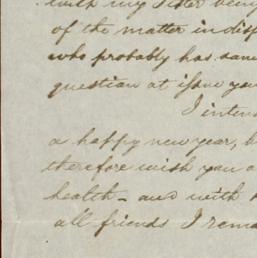 with my Sister
of the matter in
who probably has
question at issue you
I inten
a happy new year,
therefore wish you a
health - and with
all friends I rema